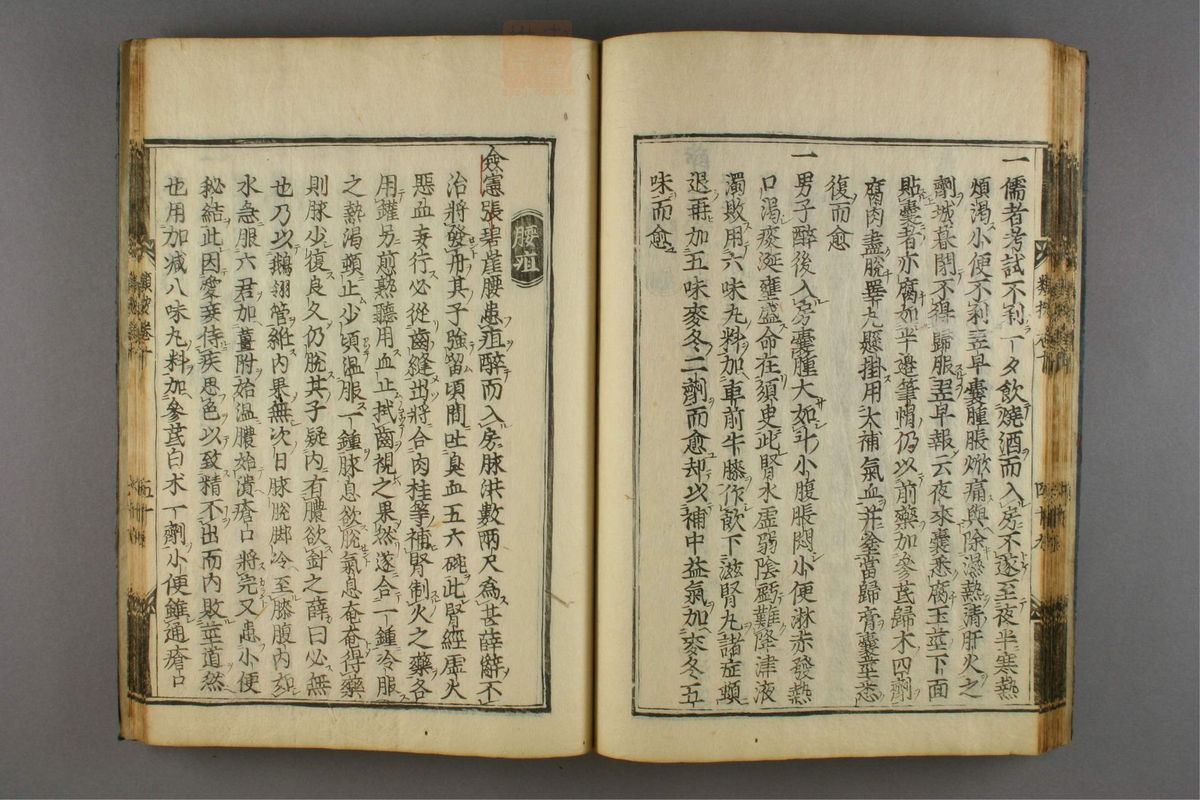 一儒者考試不利一夕飲燒酒而入房不遂至夜半寒熱
煩渴小便不利翌早囊腫脹焮痛與除濕熱清肝火之
劑城暮閉不得歸服翌早報云夜來囊悉腐玉莖下面
貼囊者亦腐如半邊筆帽仍以前藥加參芪歸朮四劑
腐肉盡脫睪丸懸掛用大補氣血并塗當歸膏囊莖悉
復而愈
一男子醉後入房囊腫大如斗小腹脹悶小便淋赤發熱
口渴痰涎壅盛命在須臾此腎水虛弱陰虧難降津液
濁敗用六味丸料加車前牛膝作飲下滋腎丸諸症頓
退再加五味麥冬二劑而愈却以補中益氣加麥冬五
味而愈
腰疽
僉憲張碧崖腰患疽醉而入房脉洪數兩尺爲甚薛辭不
治將發舟其子強留頃間吐臭血五六碗此腎經虛火
惡血妄行必從齒縫出將合肉桂等補腎制火之藥各
用鑵另煎熟聽用血止拭齒視之果然遂合一鍾冷服
之熱渴頓止少頃温服一鍾脉息欲脫氣息奄奄得藥
則脉少復良久仍脫其子疑内有膿欲針之薛曰必無
也乃以鵝翎管維内果無次日脉脫脚冷至膝腹内如
水急服六君加薑附始温膿始潰瘡口將完又患小便
秘結此因愛妾侍疾思色以致精不出而内敗莖道然
也用加减八味丸料加參芪白术一劑小便雖通瘡口